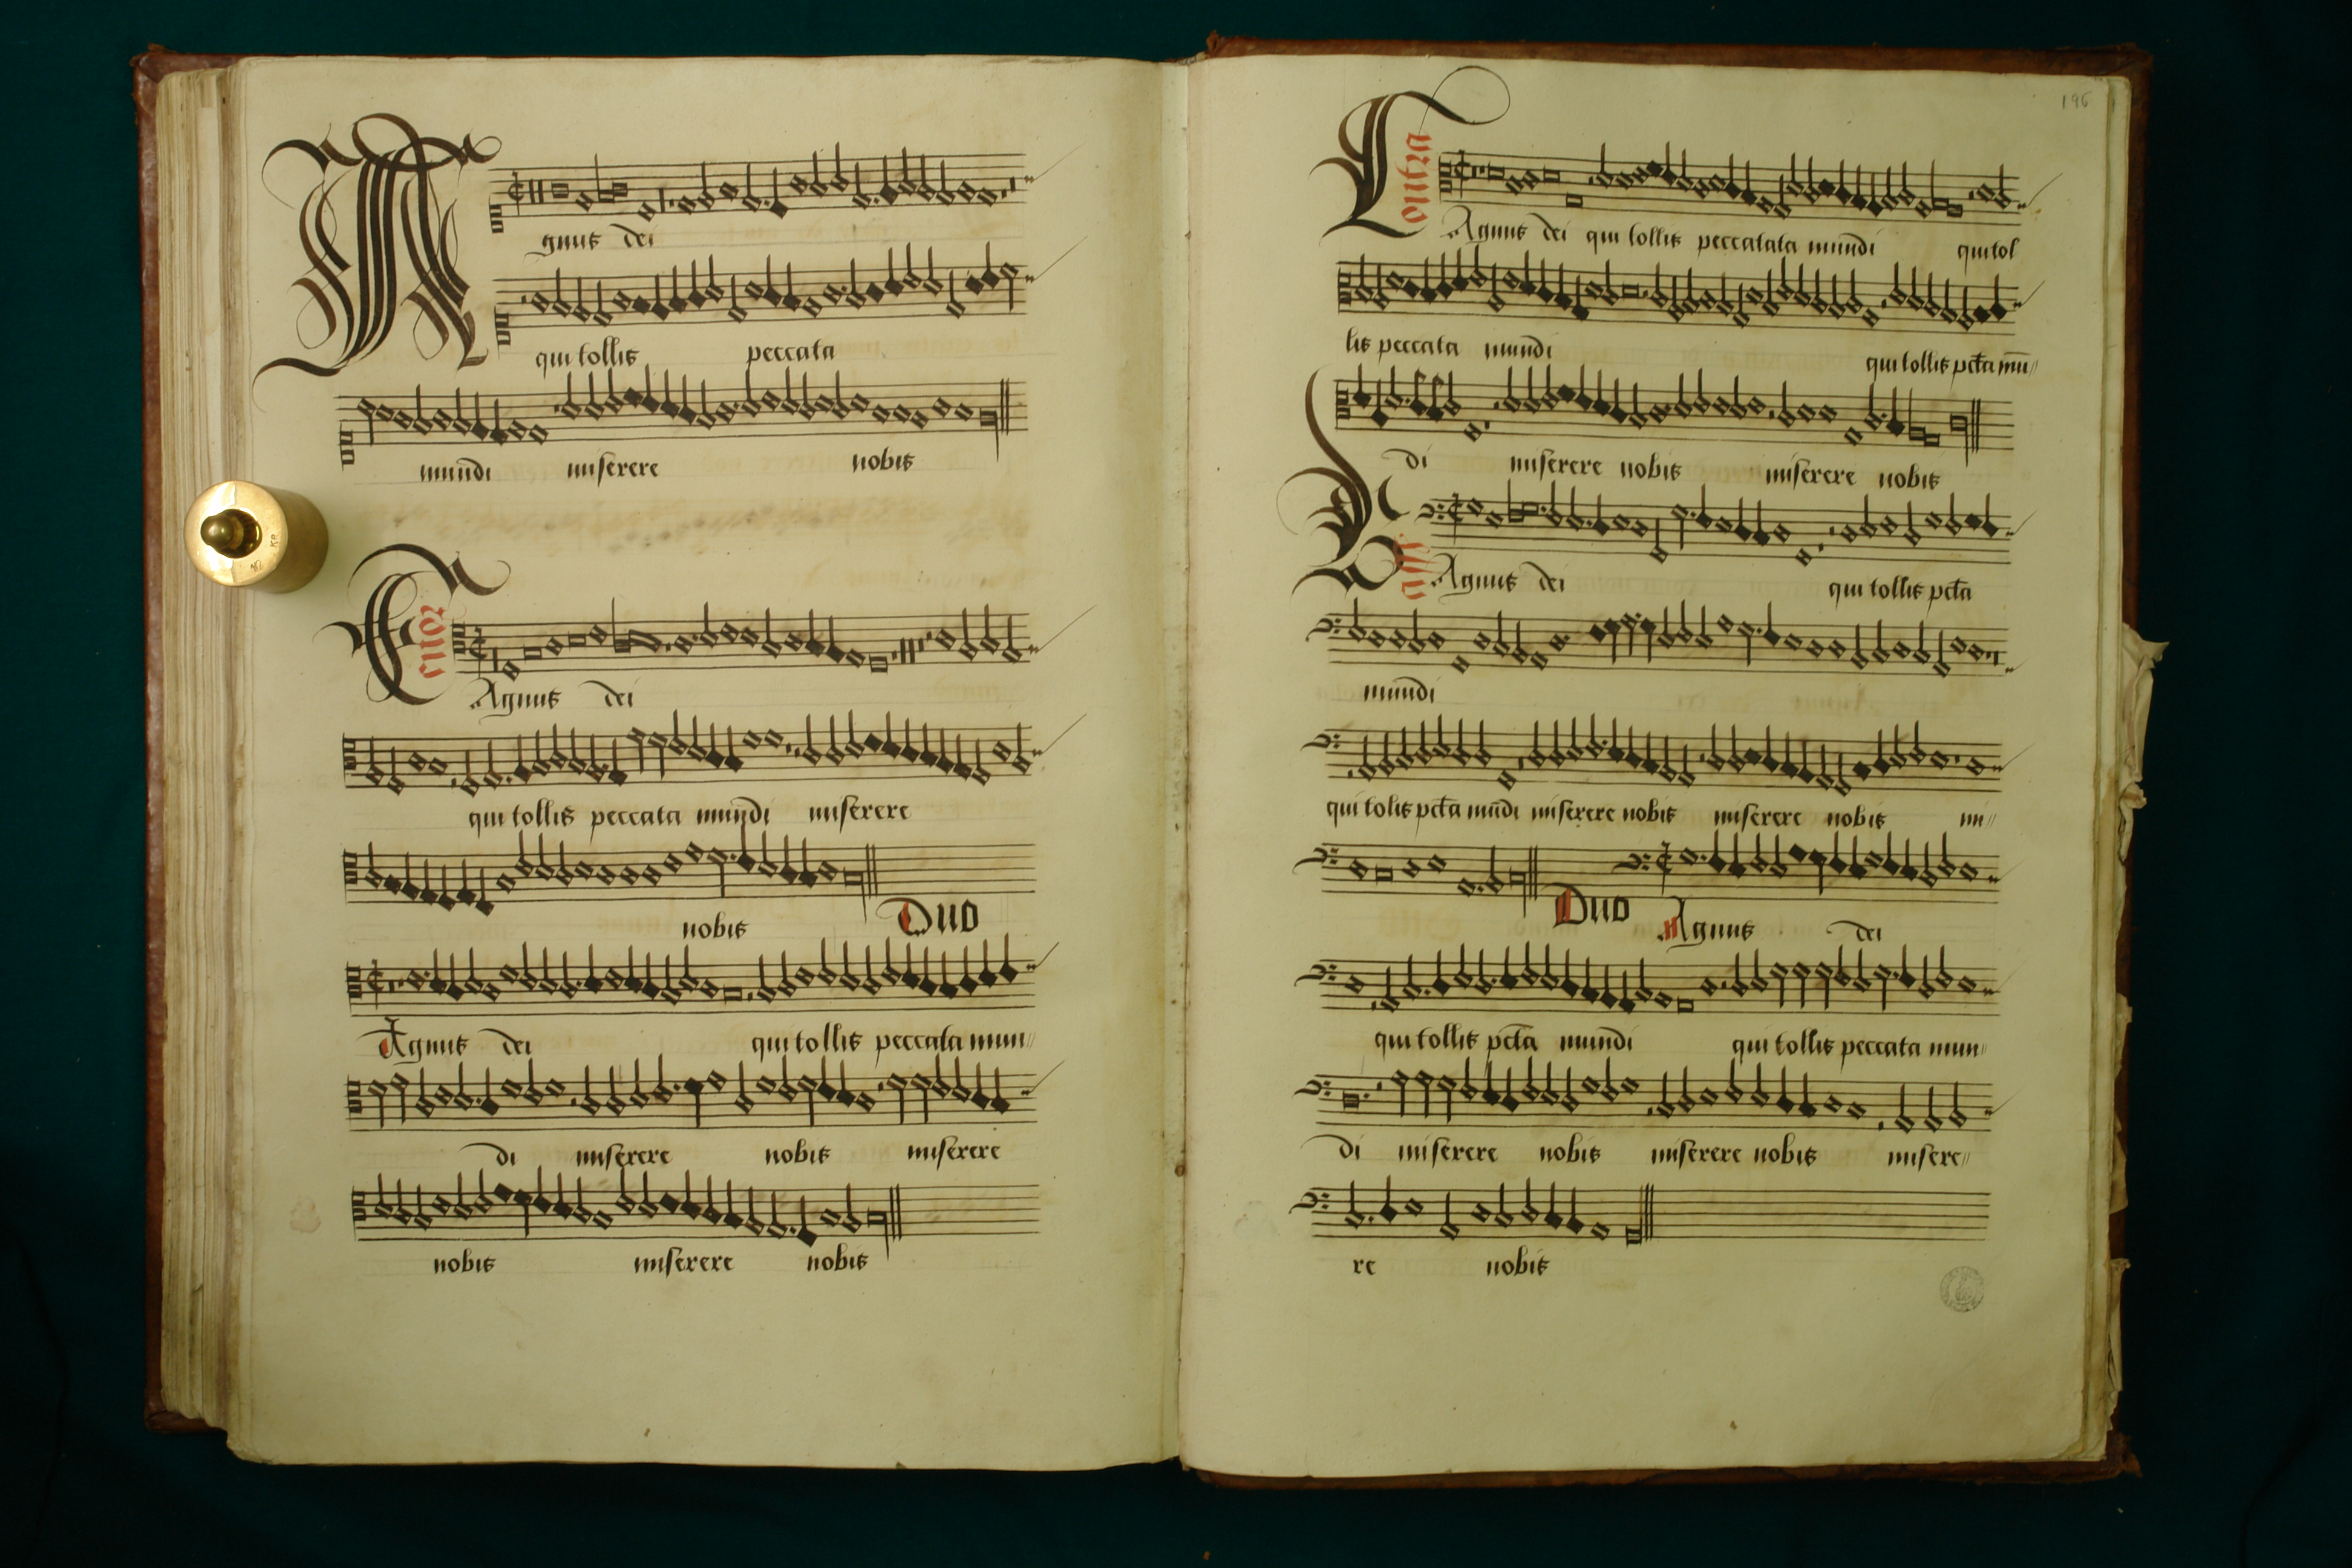 Agnus dei
qui tollis peccata
mundi miserere nobis
Tenor
Agnus dei
qui tollis peccata mundi miserere
nobis Duo
Agnus dei qui tollis peccata mun//
di miserere nobis miserere
nobis miserere nobis
196
Contra
Agnus dei qui tollis peccatata mundi qui tol
lis peccata mundi qui tollis pcta mu//
di miserere nobis miserere nobis
Bass
Agnus dei qui tollis pcta
mundi
qui tolis pcta mūdi miserere nobis miserere nobis mi//
Duo Agnus dei
qui tollis pcta mundi qui tollis peccata mun//
di miserere nobis miserere nobis misere//
re nobis